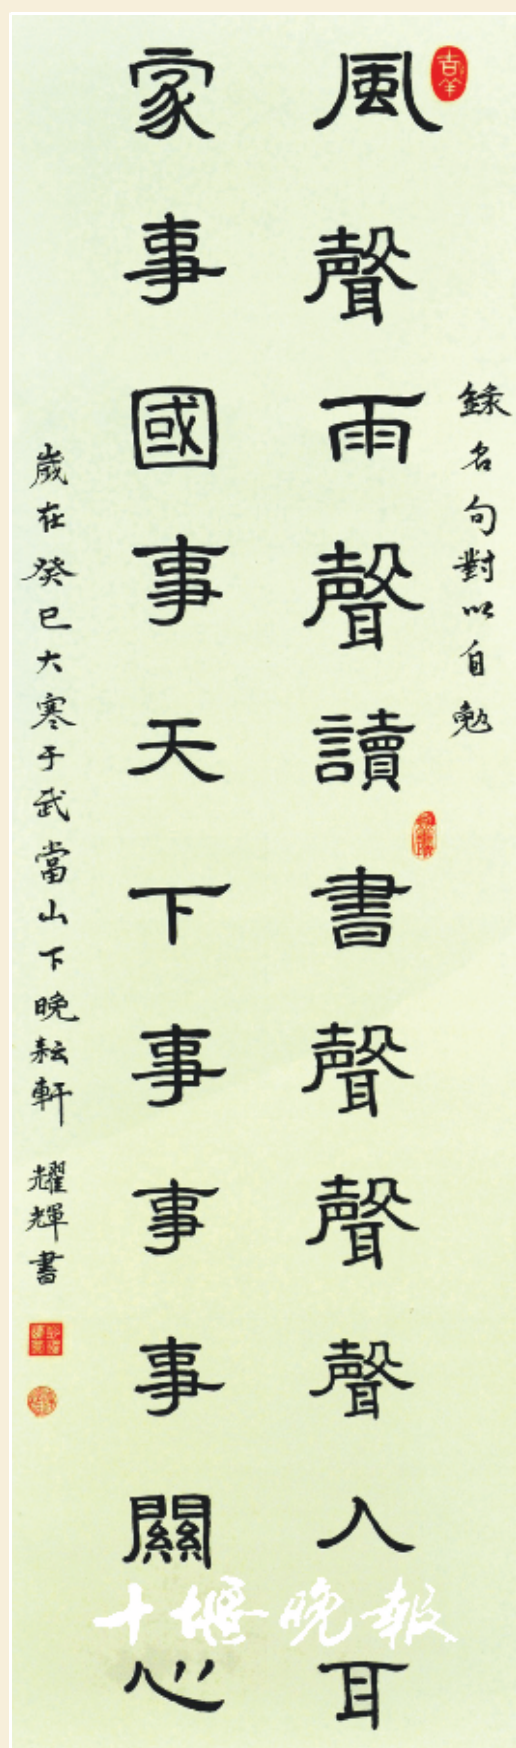 錄名句對以自勉
吉羊
風聲雨聲讀書聲聲聲入耳
家事國事天下事事事關心
歲在癸巳大寒于武當山下晚耘軒 耀輝書
十堰晚報